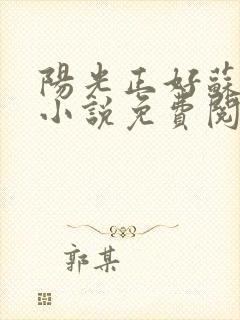 陽光正好蘇
小說免費閱
郭某